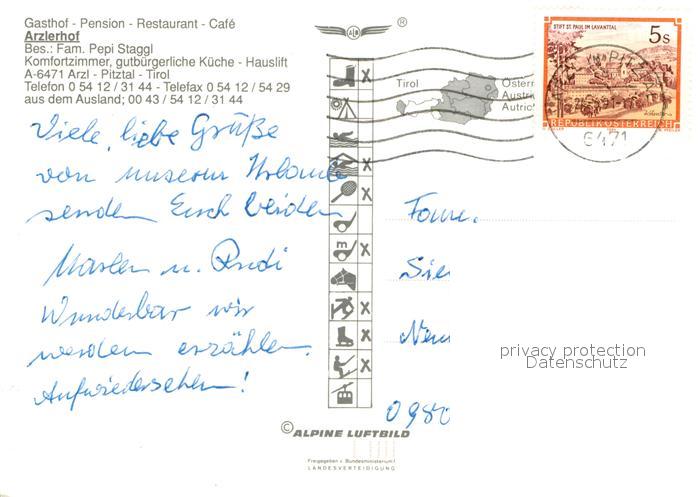 Gasthof - Pension - Restaurant - Café
Arzlerhof
Bes.: Fam. Pepi Staggl
Komfortzimmer, gutbürgerliche Küche - Hauslift
A-6471 Arzl - Pitztal - Tirol
Telefon 0 54 12 / 31 44 - Telefax 0 54 12 / 54 29
aus dem Ausland; 00 43 / 54 12 / 31 44
Viele, liebe Grüße
von unserem Urlaub
senden Euch beiden
Marlen u. Rudi
Wunderbar wir
werden erzählen.
Aufwiedersehen!
®
Tirol
Österr
Austri
Autric
STIFT ST. PAUL IM LAVANTTAL
5s
REPUBLIK ÖSTERREICH
6471
Fam.
Neu
0980
privacy protection
Datenschutz
© ALPINE LUFTBILD
Freigegeben v. Bundesministerium f.
LANDESVERTEIDIGUNG